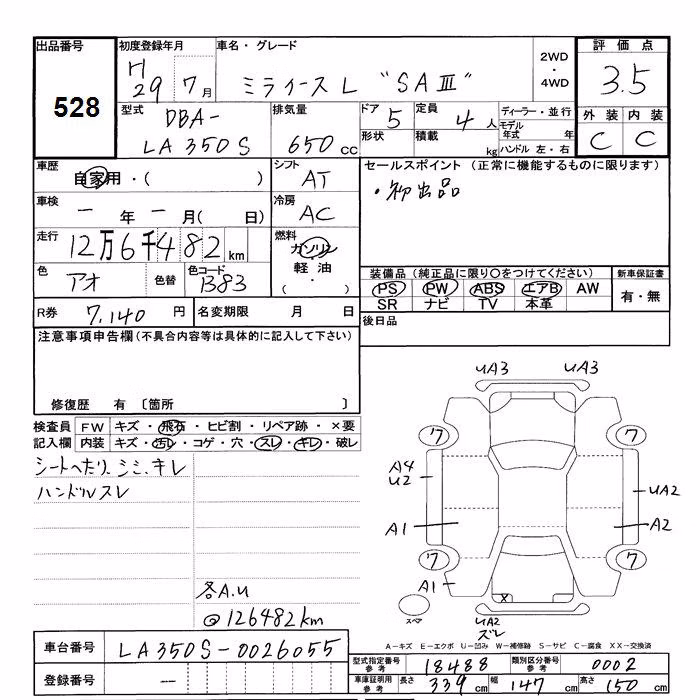 出品番号
528
初度登録年月
H 29 7 月
車名・グレード
ミライース L "SAⅢ"
2WD
・
4WD
評価点
3.5
外装 内装
C C
型式
DBA-
LA350S
排気量
650 cc
ドア 5
形状
定員 4 人
積載 kg
ディーラー・並行
モデル年式 年
ハンドル 左・右
車歴
自家用・( )
シフト
AT
セールスポイント (正常に機能するものに限ります)
・初出品
車検
ー 年 ー 月( 日)
冷房
AC
走行
12万6千482 km
燃料
ガソリン
・
軽油
( ・ )
色
アオ
色替
色コード
B83
装備品 (純正品に限り○をつけてください)
PS PW ABS エアB AW
SR ナビ TV 本革
新車保証書
有・無
R券 7,140 円
名変期限 月 日
後日品
注意事項申告欄 (不具合内容等は具体的に記入して下さい)
修復歴 有 〔箇所 〕
検査員記入欄
FW キズ・飛石・ヒビ割・リペア跡・×要
内装 キズ・汚レ・コゲ・穴・スレ・キレ・破レ
シートヘたり、シミ、キレ
ハンドルスレ
各A.U
@126482km
UA3 UA3
7 7
A4
U2
UA2
A1 A2
7 7
A1
X
スペア
UA2
ズレ
A-キズ E-エクボ U-凹み W-補修跡 S-サビ C-腐食 XX-交換済
車台番号 LA350S-0026055
登録番号 ー
型式指定番号 参考 18488
類別区分番号 参考 0002
車庫証明用 参考 長さ 339 cm 幅 147 cm 高さ 150 cm